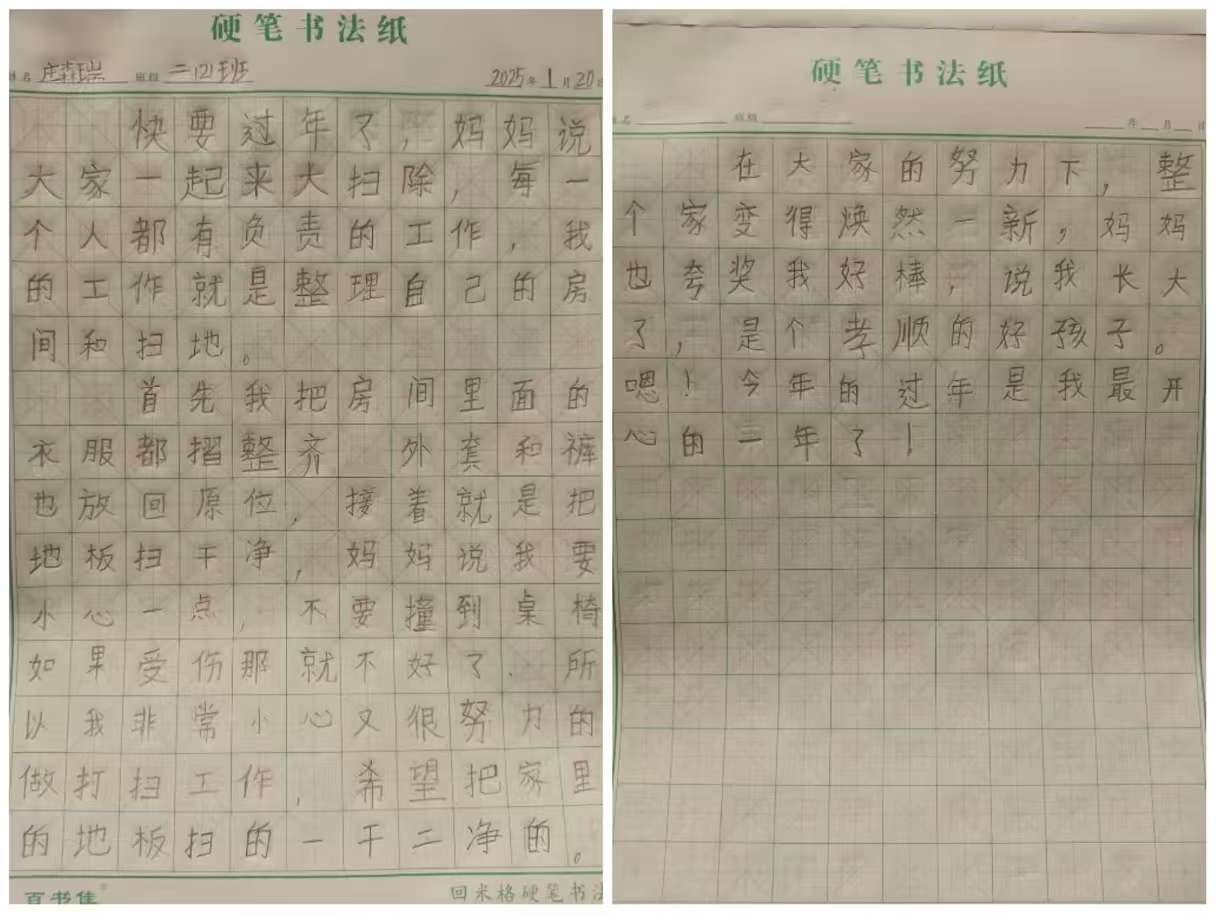 硬笔书法纸
姓名 庄森瑞 班级 二(2)班 2025年1月20日
快要过年了,妈妈说
大家一起来大扫除,每一
个人都有负责的工作,我
的工作就是整理自己的房
间和扫地。
首先我把房间里面的
衣服都摺整齐 外套和裤
也放回原位,接着就是把
地板扫干净,妈妈说我要
小心一点,不要撞到桌椅
如果受伤那就不好了.所
以我非常小心又很努力的
做打扫工作,希望把家里
的地板扫的一干二净的。
百书集 回米格硬笔书法
硬笔书法纸
姓名 班级 年 月 日
在大家的努力下,整
个家变得焕然一新,妈妈
也夸奖我好棒,说我长大
了,是个孝顺的好孩子。
嗯!今年的过年是我最开
心的一年了!